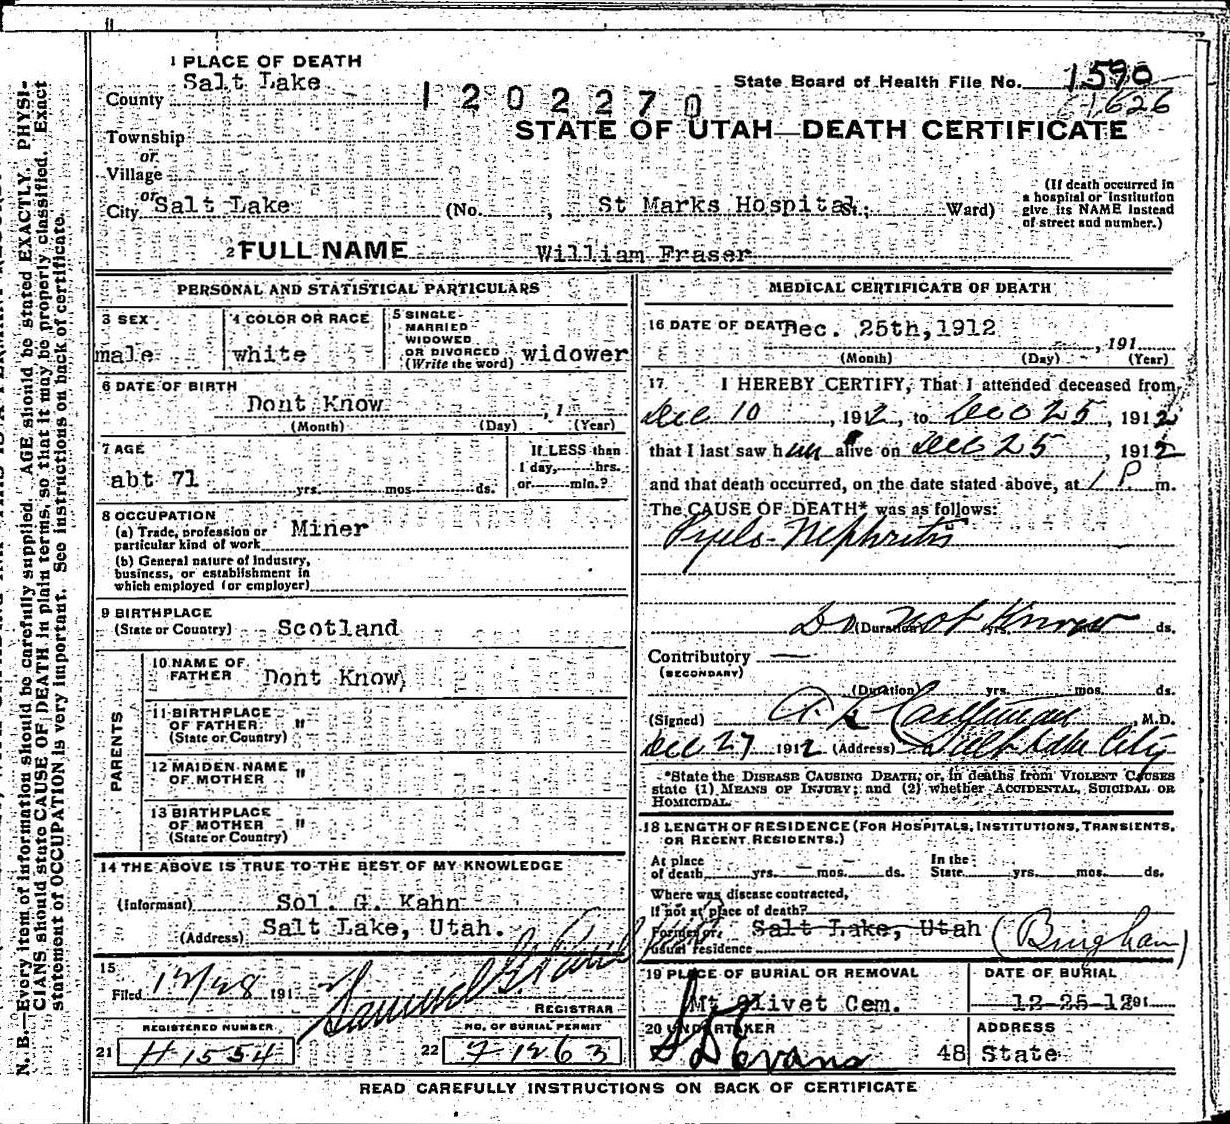 1 PLACE OF DEATH
County Salt Lake
1 2 0 2 2 7 0
State Board of Health File No. 1590
1626
STATE OF UTAH—DEATH CERTIFICATE
Township
or
Village
or
City Salt Lake (No. , St Marks Hospital St.; Ward)
(If death occurred in a hospital or institution give its NAME instead of street and number.)
2 FULL NAME William Fraser
PERSONAL AND STATISTICAL PARTICULARS
3 SEX male
4 COLOR OR RACE white
5 SINGLE MARRIED WIDOWED OR DIVORCED (Write the word) widower
6 DATE OF BIRTH
Dont Know , 1
(Month) (Day) (Year)
7 AGE
abt 71 yrs. mos. ds.
If LESS than 1 day, hrs. or min.?
8 OCCUPATION
(a) Trade, profession or particular kind of work Miner
(b) General nature of industry, business, or establishment in which employed (or employer)
9 BIRTHPLACE
(State or Country) Scotland
PARENTS
10 NAME OF FATHER Dont Know
11 BIRTHPLACE OF FATHER (State or Country) "
12 MAIDEN NAME OF MOTHER "
13 BIRTHPLACE OF MOTHER (State or Country) "
14 THE ABOVE IS TRUE TO THE BEST OF MY KNOWLEDGE
(Informant) Sol. G. Kahn
(Address) Salt Lake, Utah.
15
Filed 12/28 191 2 Samuel G Paul
REGISTRAR
REGISTERED NUMBER
21 H 1554
NO. OF BURIAL PERMIT
22 71263
MEDICAL CERTIFICATE OF DEATH
16 DATE OF DEATH Dec. 25th, 1912 , 191
(Month) (Day) (Year)
17 I HEREBY CERTIFY, That I attended deceased from
Dec 10 , 1912, to Dec 25 , 1912
that I last saw him alive on Dec 25 , 1912
and that death occurred, on the date stated above, at 1 P. m.
The CAUSE OF DEATH* was as follows:
Pyelo-Nephritis
Do not Know (Duration) yrs. mos. ds.
Contributory —
(SECONDARY)
(Duration) yrs. mos. ds.
(Signed) , M.D.
Dec 27 1912 (Address) Salt Lake City
*State the DISEASE CAUSING DEATH; or, in deaths from VIOLENT CAUSES
state (1) MEANS OF INJURY; and (2) whether ACCIDENTAL, SUICIDAL OR
HOMICIDAL.
18 LENGTH OF RESIDENCE (FOR HOSPITALS, INSTITUTIONS, TRANSIENTS,
OR RECENT RESIDENTS.)
At place of death, yrs. mos. ds. In the State yrs. mos. ds.
Where was disease contracted,
If not at place of death?
Former or usual residence Salt Lake, Utah (Bingham)
19 PLACE OF BURIAL OR REMOVAL
Mt Olivet Cem.
DATE OF BURIAL
12-25-12 191
20 UNDERTAKER
S D Evans
ADDRESS
48 State
READ CAREFULLY INSTRUCTIONS ON BACK OF CERTIFICATE
N. B.—Every item of information should be carefully supplied. AGE should be stated EXACTLY. PHYSI-
CIANS should state CAUSE OF DEATH in plain terms, so that it may be properly classified. Exact
statement of OCCUPATION is very important. See instructions on back of certificate.